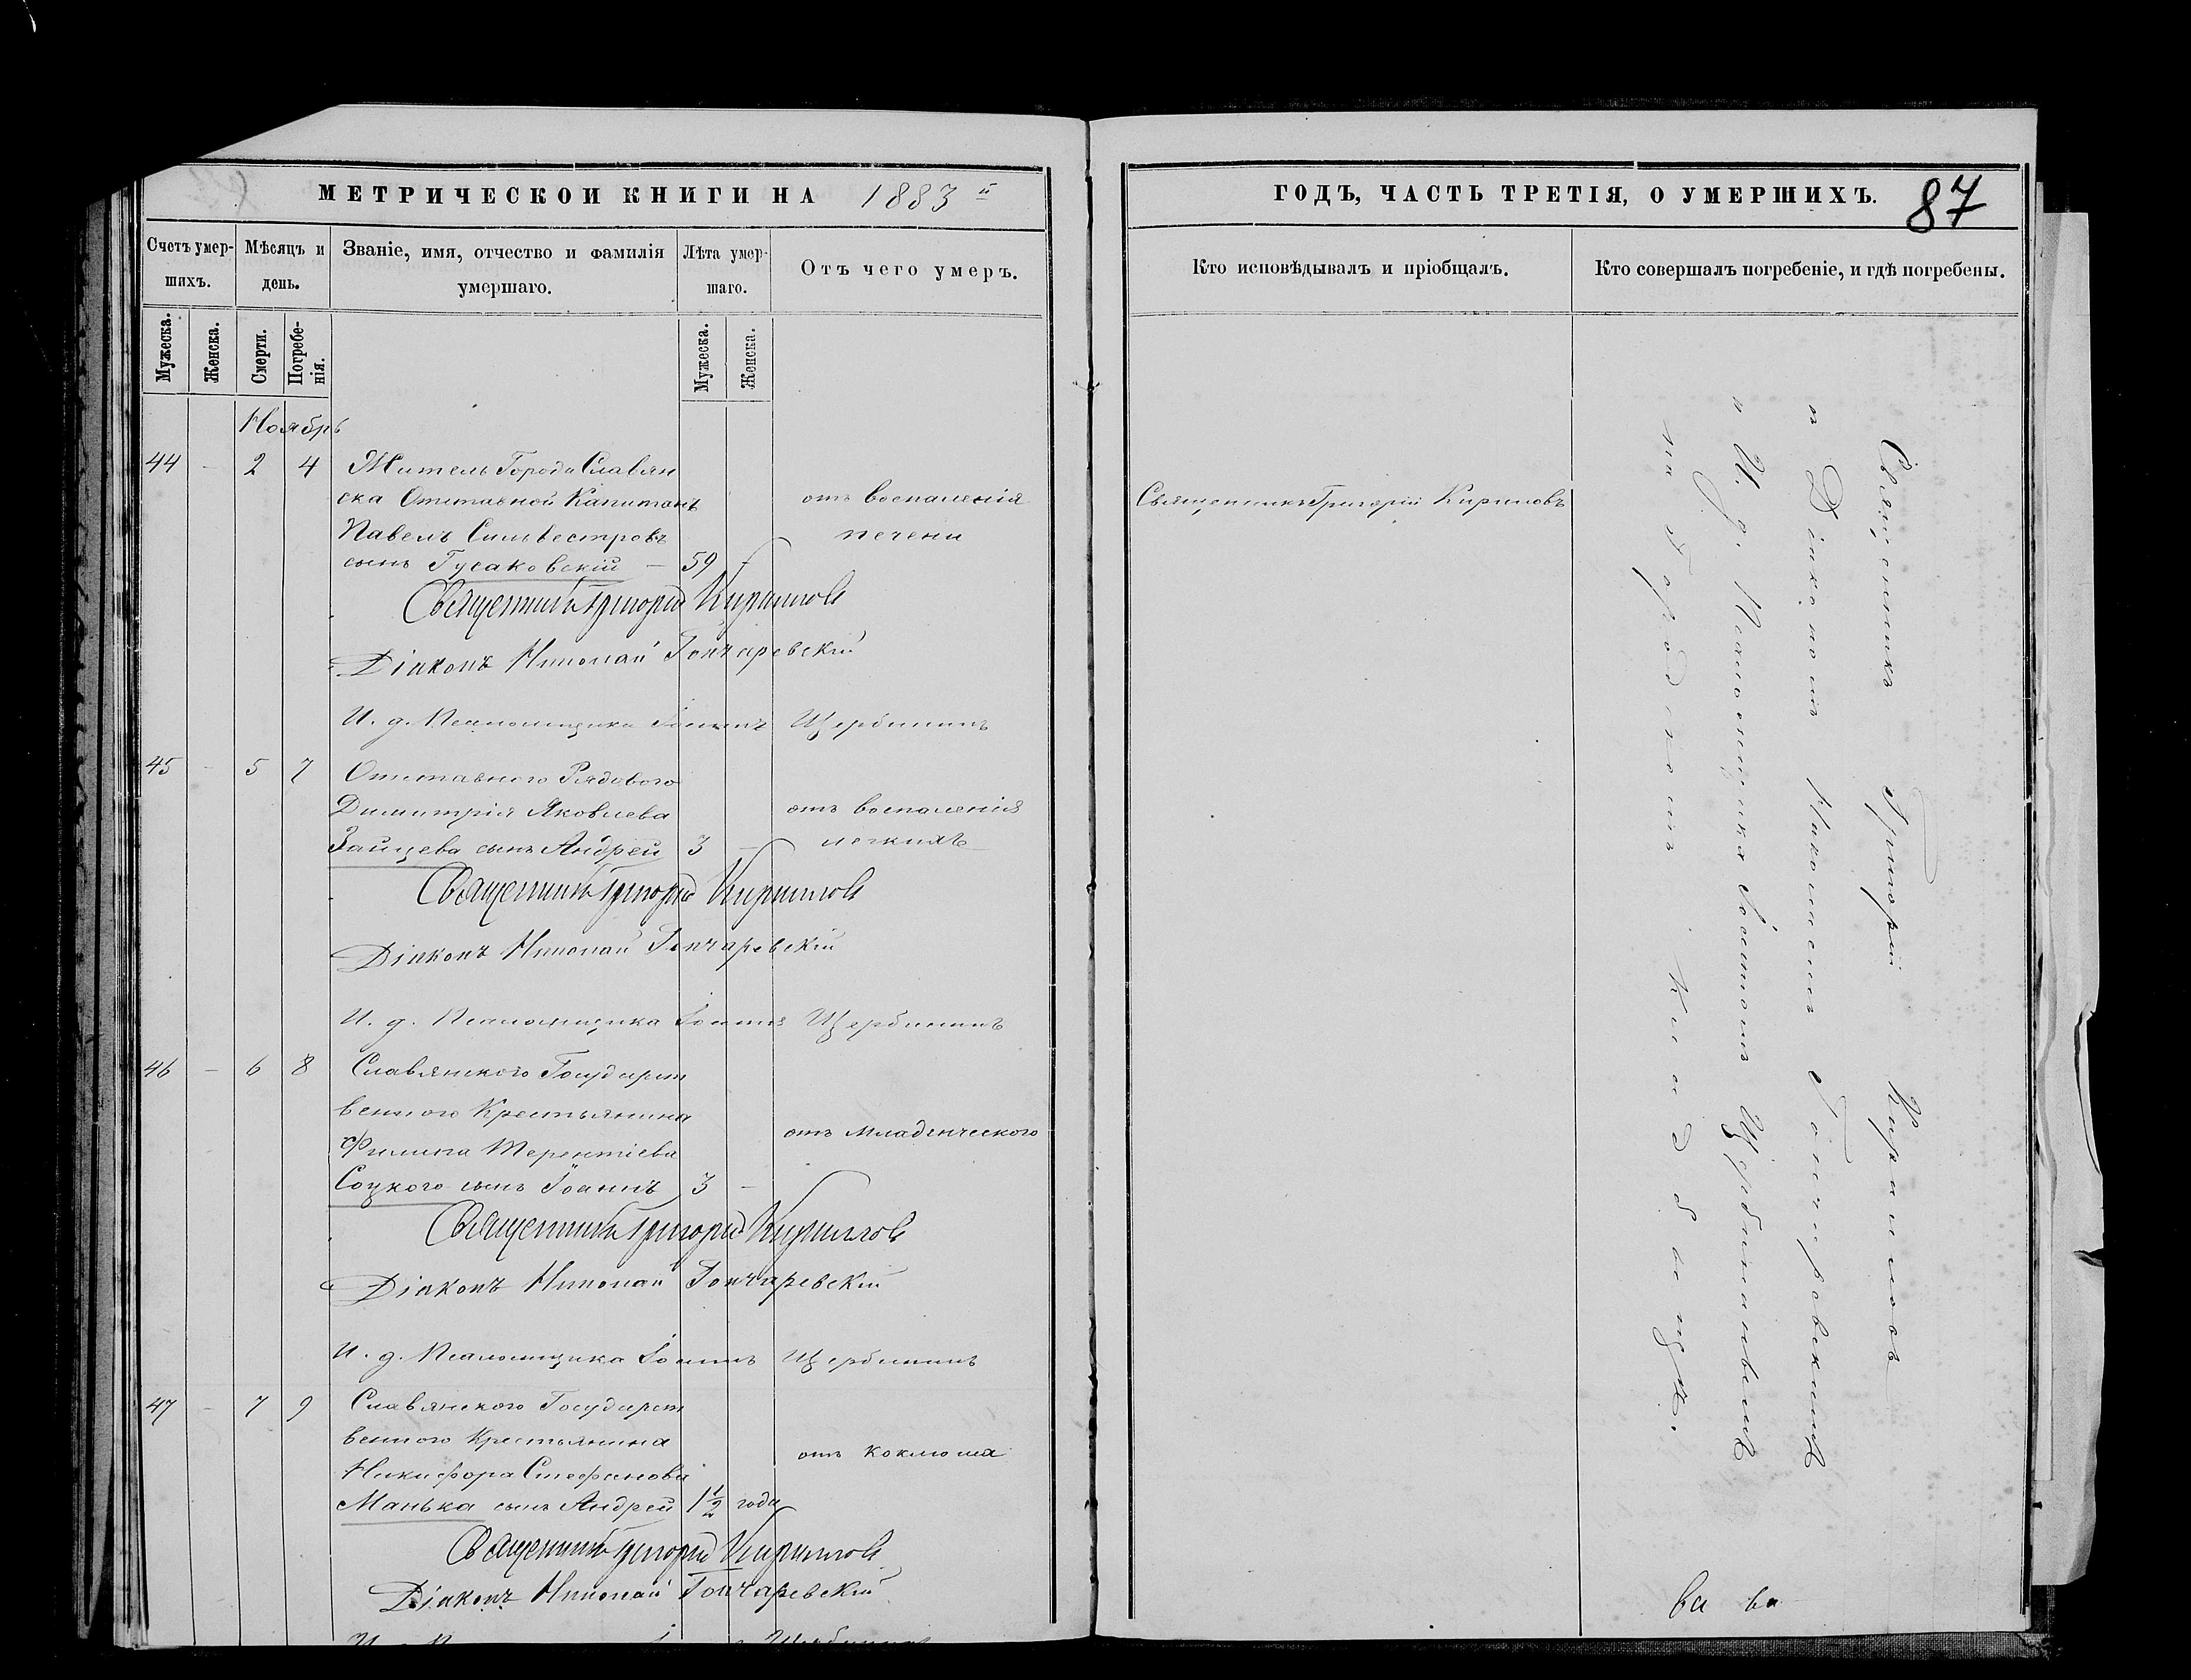 МЕТРИЧЕСКОЙ КНИГИ НА 1883й
Счетъ умершихъ.
Мѣсяцъ и день.
Званіе, имя, отчество и фамилія умершаго.
Лѣта умершаго.
Отъ чего умеръ.
Мужеска.
Женска.
Смерти.
Погребенія.
Мужеска.
Женска.
Ноябрь
44 – 2 4 Житель Города Славян
ска Отставной Капитанъ отъ воспаленія
Павелъ Сильвестровъ печени
сынъ Гусаковскій — 59 –
Священникъ Григорій Кириловъ
Діаконъ Николай Гончаревскій
И. д. Псаломщика Іоаннъ Щербининъ
45 – 5 7 Отставного Рядового
Димитрія Яковлева отъ воспаленія
Зайцева сынъ Андрей 3 – легкихъ
Священникъ Григорій Кириловъ
Діаконъ Николай Гончаревскій
И. д. Псаломщика Іоаннъ Щербининъ
46 – 6 8 Славянского Государст
венного Крестьянина
Филипа Терентіева отъ младенческого
Соцкого сынъ Іоаннъ 3 –
Священникъ Григорій Кириловъ
Діаконъ Николай Гончаревскій
И. д. Псаломщика Іоаннъ Щербининъ
47 – 7 9 Славянского Государст
венного Крестьянина
Никифора Стефанова отъ коклюша
Манька сынъ Андрей 1½ года
Священникъ Григорій Кириловъ
Діаконъ Николай Гончаревскій
ГОДЪ, ЧАСТЬ ТРЕТІЯ, О УМЕРШИХЪ. 87
Кто исповѣдывалъ и пріобщалъ.
Кто совершалъ погребеніе, и гдѣ погребены.
Священникъ Григорій Кириловъ
Священникъ Григорій Кириловъ
съ Діакономъ Николаемъ Гончаревскимъ
и И. д. Псаломщика Іоанномъ Щербининымъ
на Городскомъ Кладбищѣ.